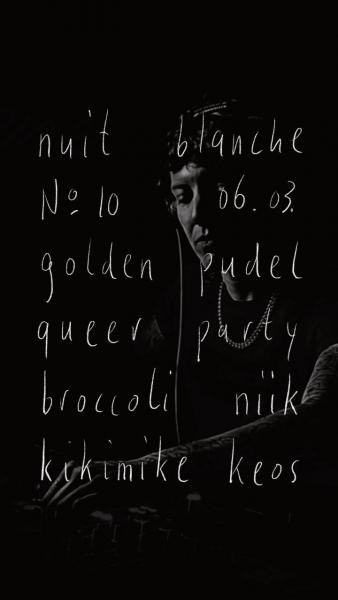 nuit blanche
Nº 10 06.03.
golden pudel
queer party
broccoli niik
kikimike keos